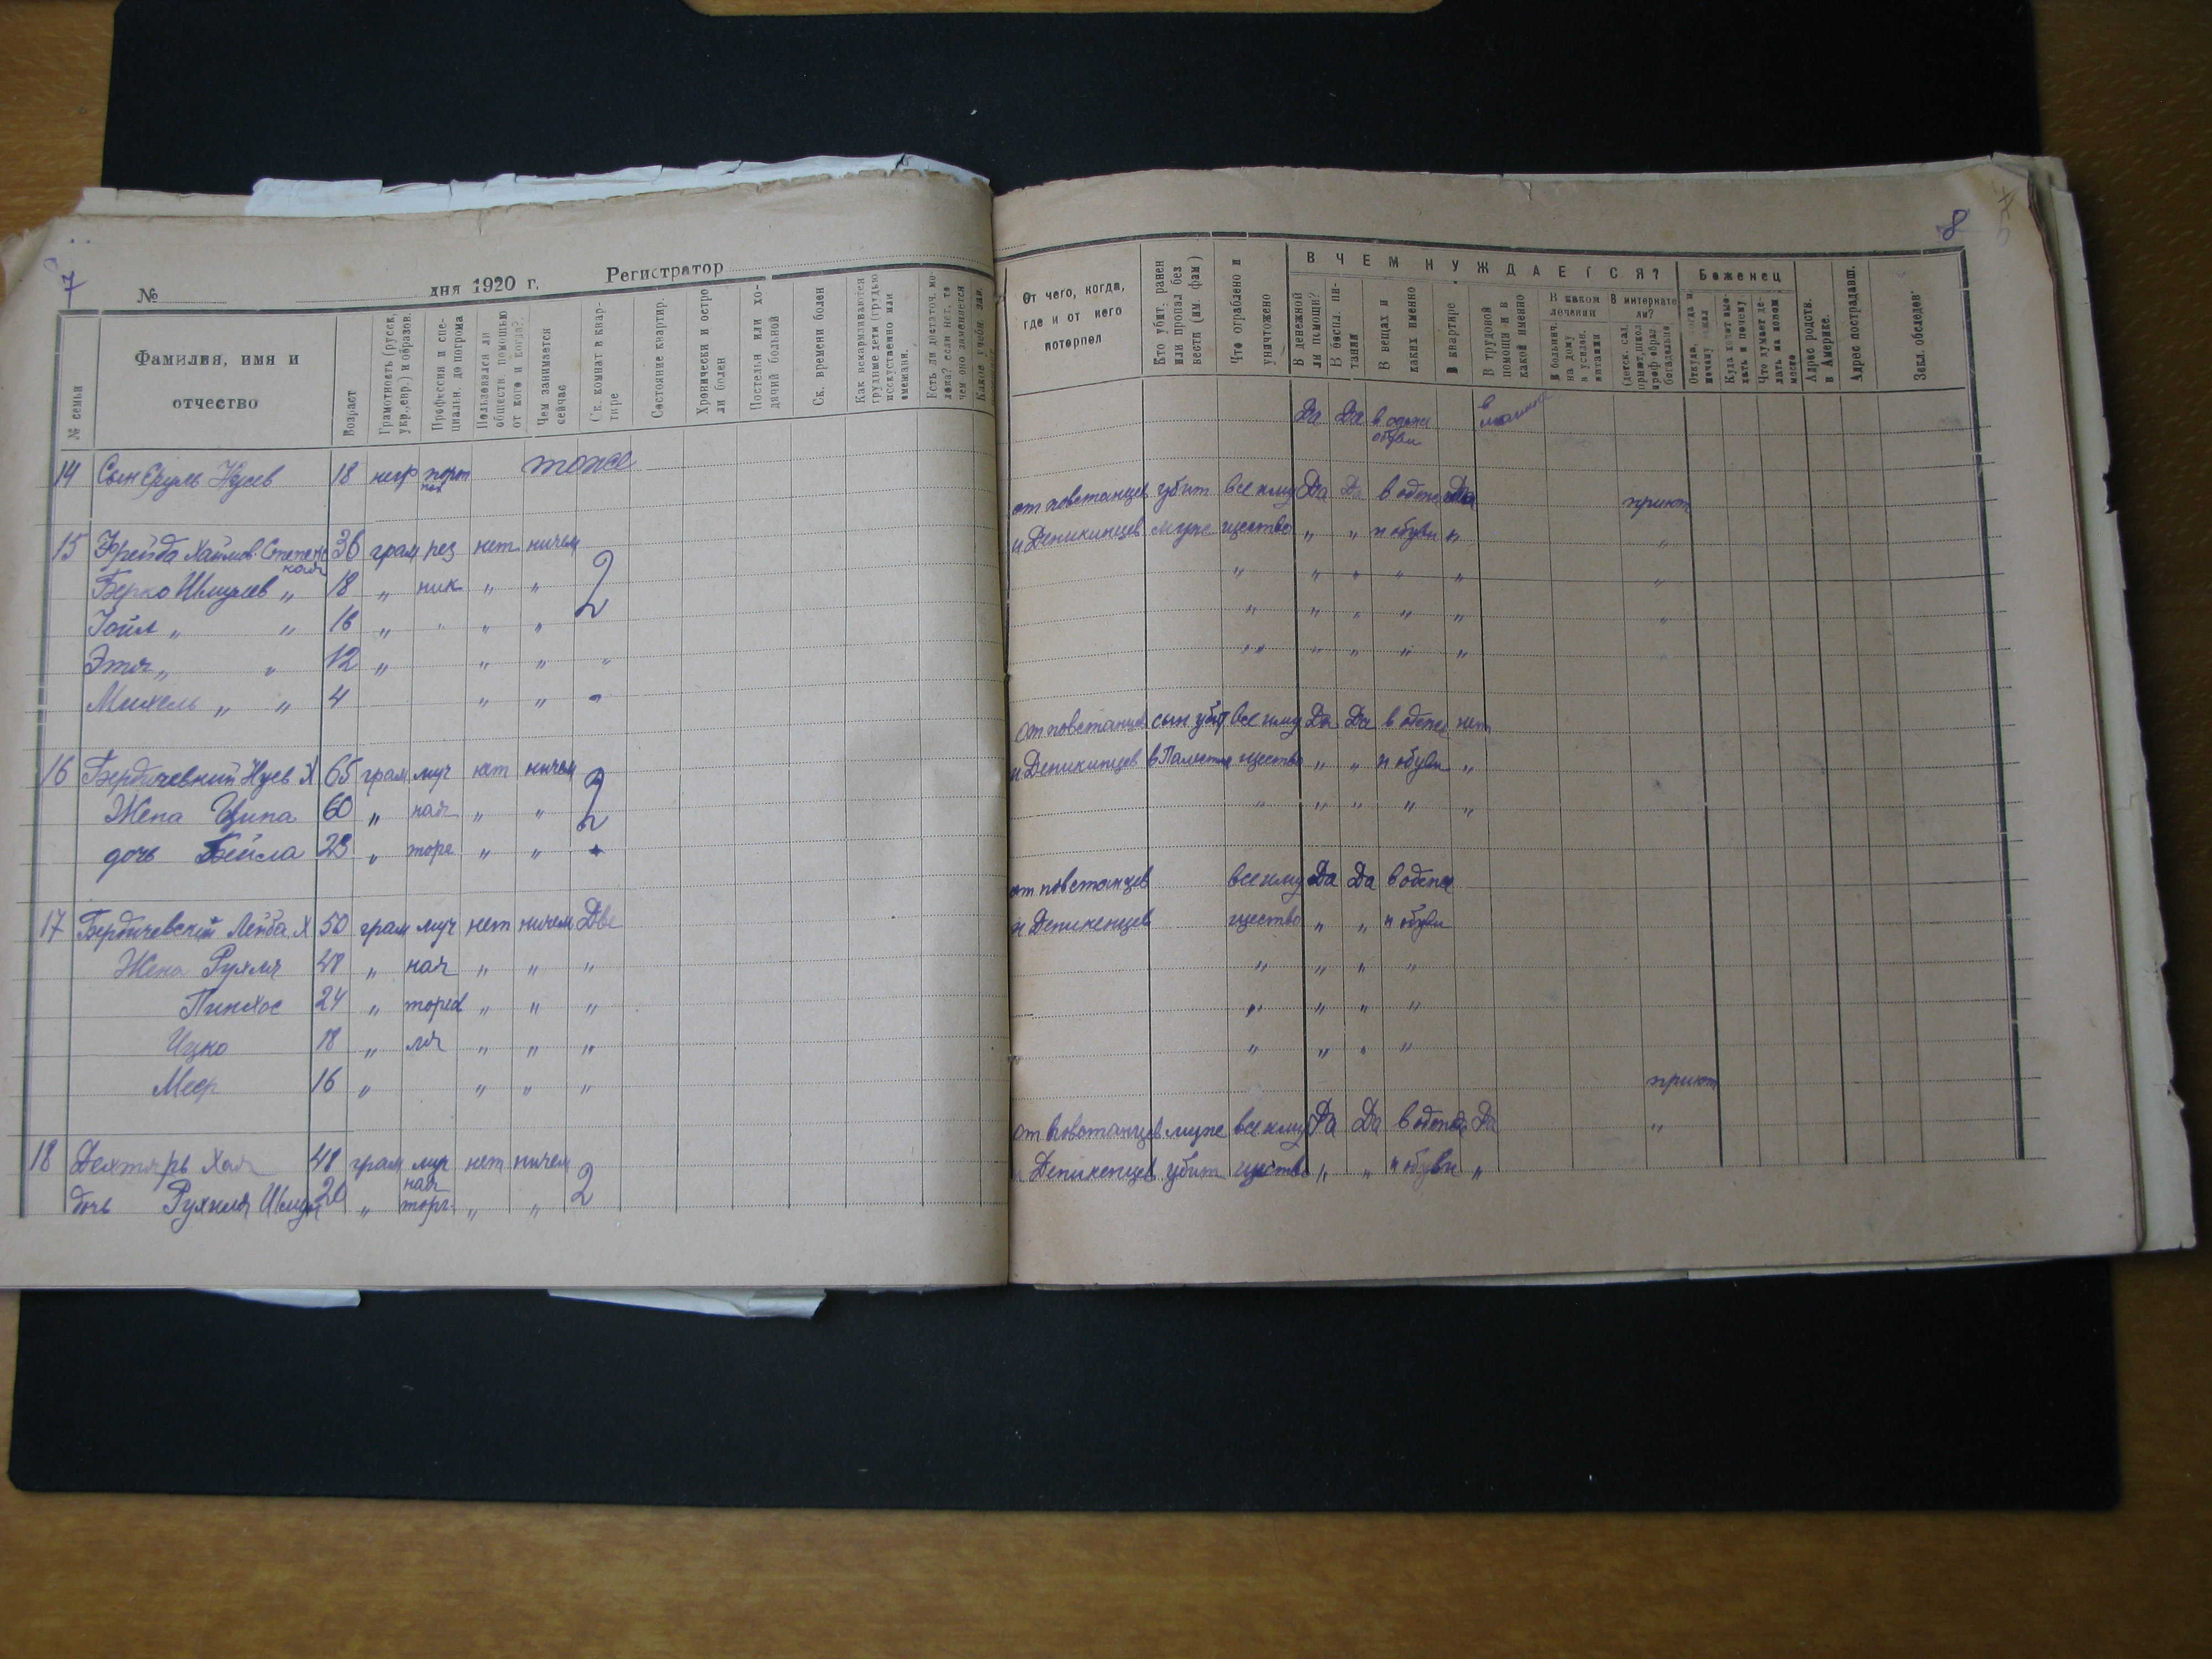 7
8
№ дня 1920 г. Регистратор
№ семьи
Фамилия, имя и отчество
Возраст
Грамотность (русск., укр., евр.) и образов.
Профессия и специальн. до погрома
Пользовался ли обществ. помощью от кого и когда?
Чем занимается сейчас
Ск. комнат в квартире
Состояние квартир.
Хронически и остро ли болен
Постельн или ходячий больной
Ск. времени болен
Как вскармливаются грудные дети (грудью искусственно или смешанн.
Есть ли достаточ. молока? если нет, то чем оно заменяется
От чего, когда, где и от кого потерпел
Кто убит, ранен или пропал без вести (им. фам)
Что ограблено и уничтожено
В ЧЕМ НУЖДАЕТСЯ?
В денежной ли помощи?
В беспл. питании
В вещах и каких именно
В квартире
В трудовой помощи и в какой именно
В каком лечении
В больнич. на дому в усилен. питании
В интернате ли?
Беженец
Куда хочет выехать и почему
Что думает делать на новом месте
Адрес родств. в Америке.
Адрес пострадавш.
Закл. обследов.
14 Сын Сруль Нусев 18 негр тоже
Да Да в одежи обуви
15 Фрейда Хаимов. 36 грам рез нет ничем 2
от повстанцев убит все иму Да Да в одеже Да приют
Берко Шмулев „ 18 „ ник „ „
и Деникинцев муж щество „ „ и обуви „ „
Иойл „ „ 16 „ „ „ „
Этя „ „ 12 „ „ „ „
Михель „ „ 4 „ „
16 Бердичевский Нусь Х 65 грам муч нет ничем 2
от повстанцев сын убит все иму Да Да в одеже нет
Жена Ципа 60 „ ная „ „
и Деникинцев щество „ „ и обуви „
дочь Бейла 23 „ торг „ „
17 Бердичевский Лейба Х 50 грам муч нет ничем Две
от повстанцев все иму Да Да в одеже
Жена Рухля 48 „ ная „ „ „
и Деникенцев щество „ „ и обуви
Пинхос 24 „ „ „ „
Ицко 18 „ ля „ „ „
Меер 16 „ „ „ „
18 Дехтярь Хая 48 грам муч нет ничем 2
от повстанцев муж все иму Да Да в одеже Да приют
дочь Рухля 20 „ ная торг. „ „
и Деникенцев убит щество „ „ и обуви „ „